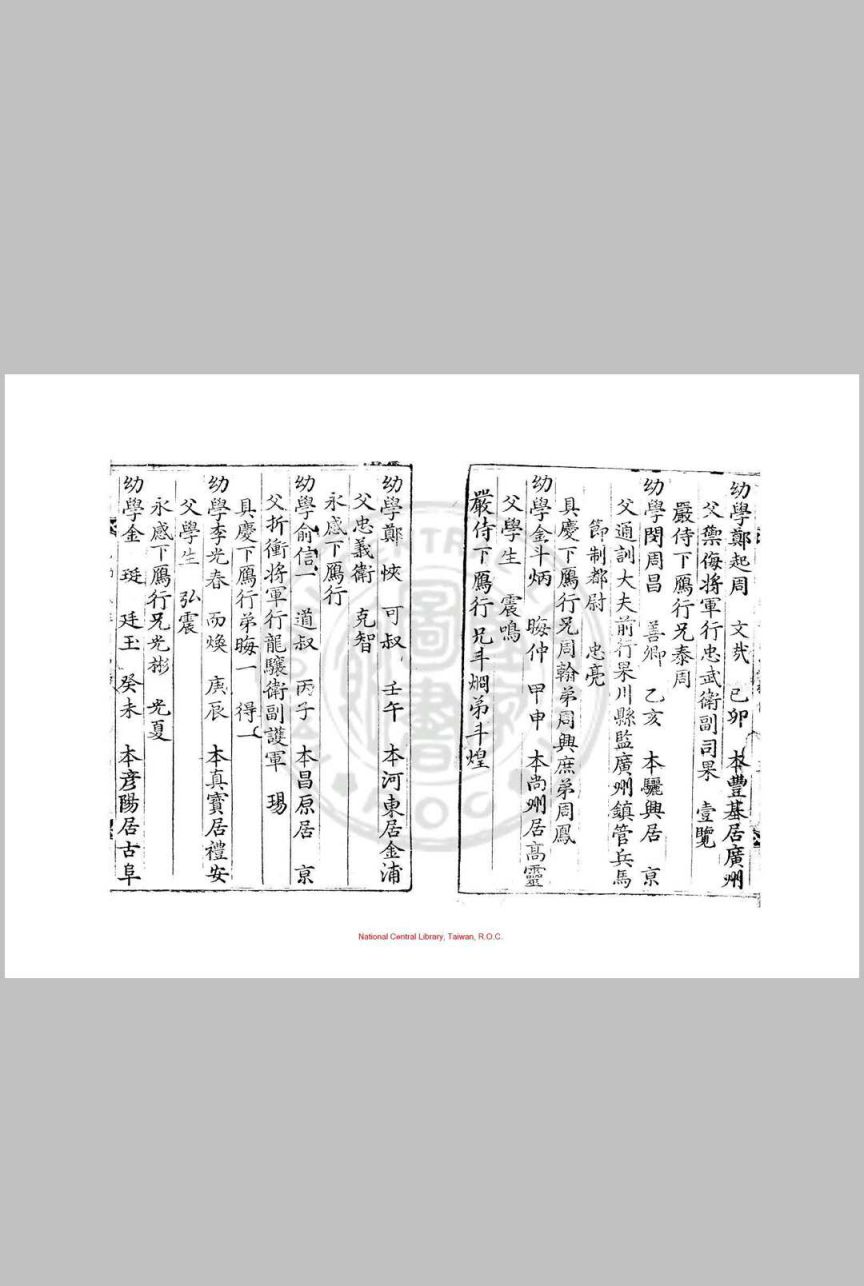 幼學鄭起周 文哉 己卯 本豐基居廣州
父禦侮將軍行忠武衛副司果 壹覽
嚴侍下鴈行兄泰周
幼學閔周昌 善卿 乙亥 本驪興居 京
父通訓大夫前行果川縣監廣州鎮管兵馬
節制都尉 忠亮
具慶下鴈行兄周翰弟周興庶弟周鳳
幼學金斗炳 晦仲 甲申 本尚州居高靈
父學生 震鳴
嚴侍下鴈行兄斗烱弟斗煌
幼學鄭 悏 可叔 壬午 本河東居金浦
父忠義衛 克智
永感下鴈行
幼學俞信一 道叔 丙子 本昌原居 京
父折衝將軍行龍驤衛副護軍 瑒
具慶下鴈行弟晦一 得一
幼學李光春 而煥 庚辰 本真寶居禮安
父學生 弘震
永感下鴈行兄光彬 光夏
幼學金 珽 廷玉 癸未 本彥陽居古阜
National Central Library, Taiwan, R.O.C.